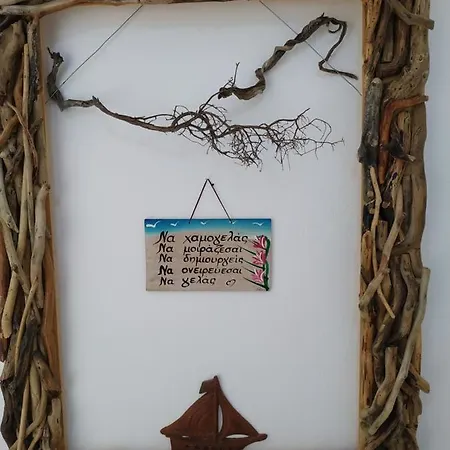 Να χαμογελάς
Να μοιράζεσαι
Να δημιουργείς
Να ονειρεύεσαι
Να γελάς